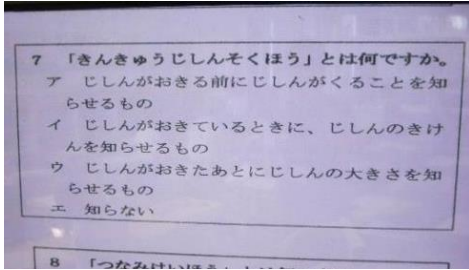 7 「きんきゅうじしんそくほう」とは何ですか。
ア じしんがおきる前にじしんがくることを知
らせるもの
イ じしんがおきているときに、じしんのきけ
んを知らせるもの
ウ じしんがおきたあとにじしんの大きさを知
らせるもの
エ 知らない
8 「つなみけいほう」とは